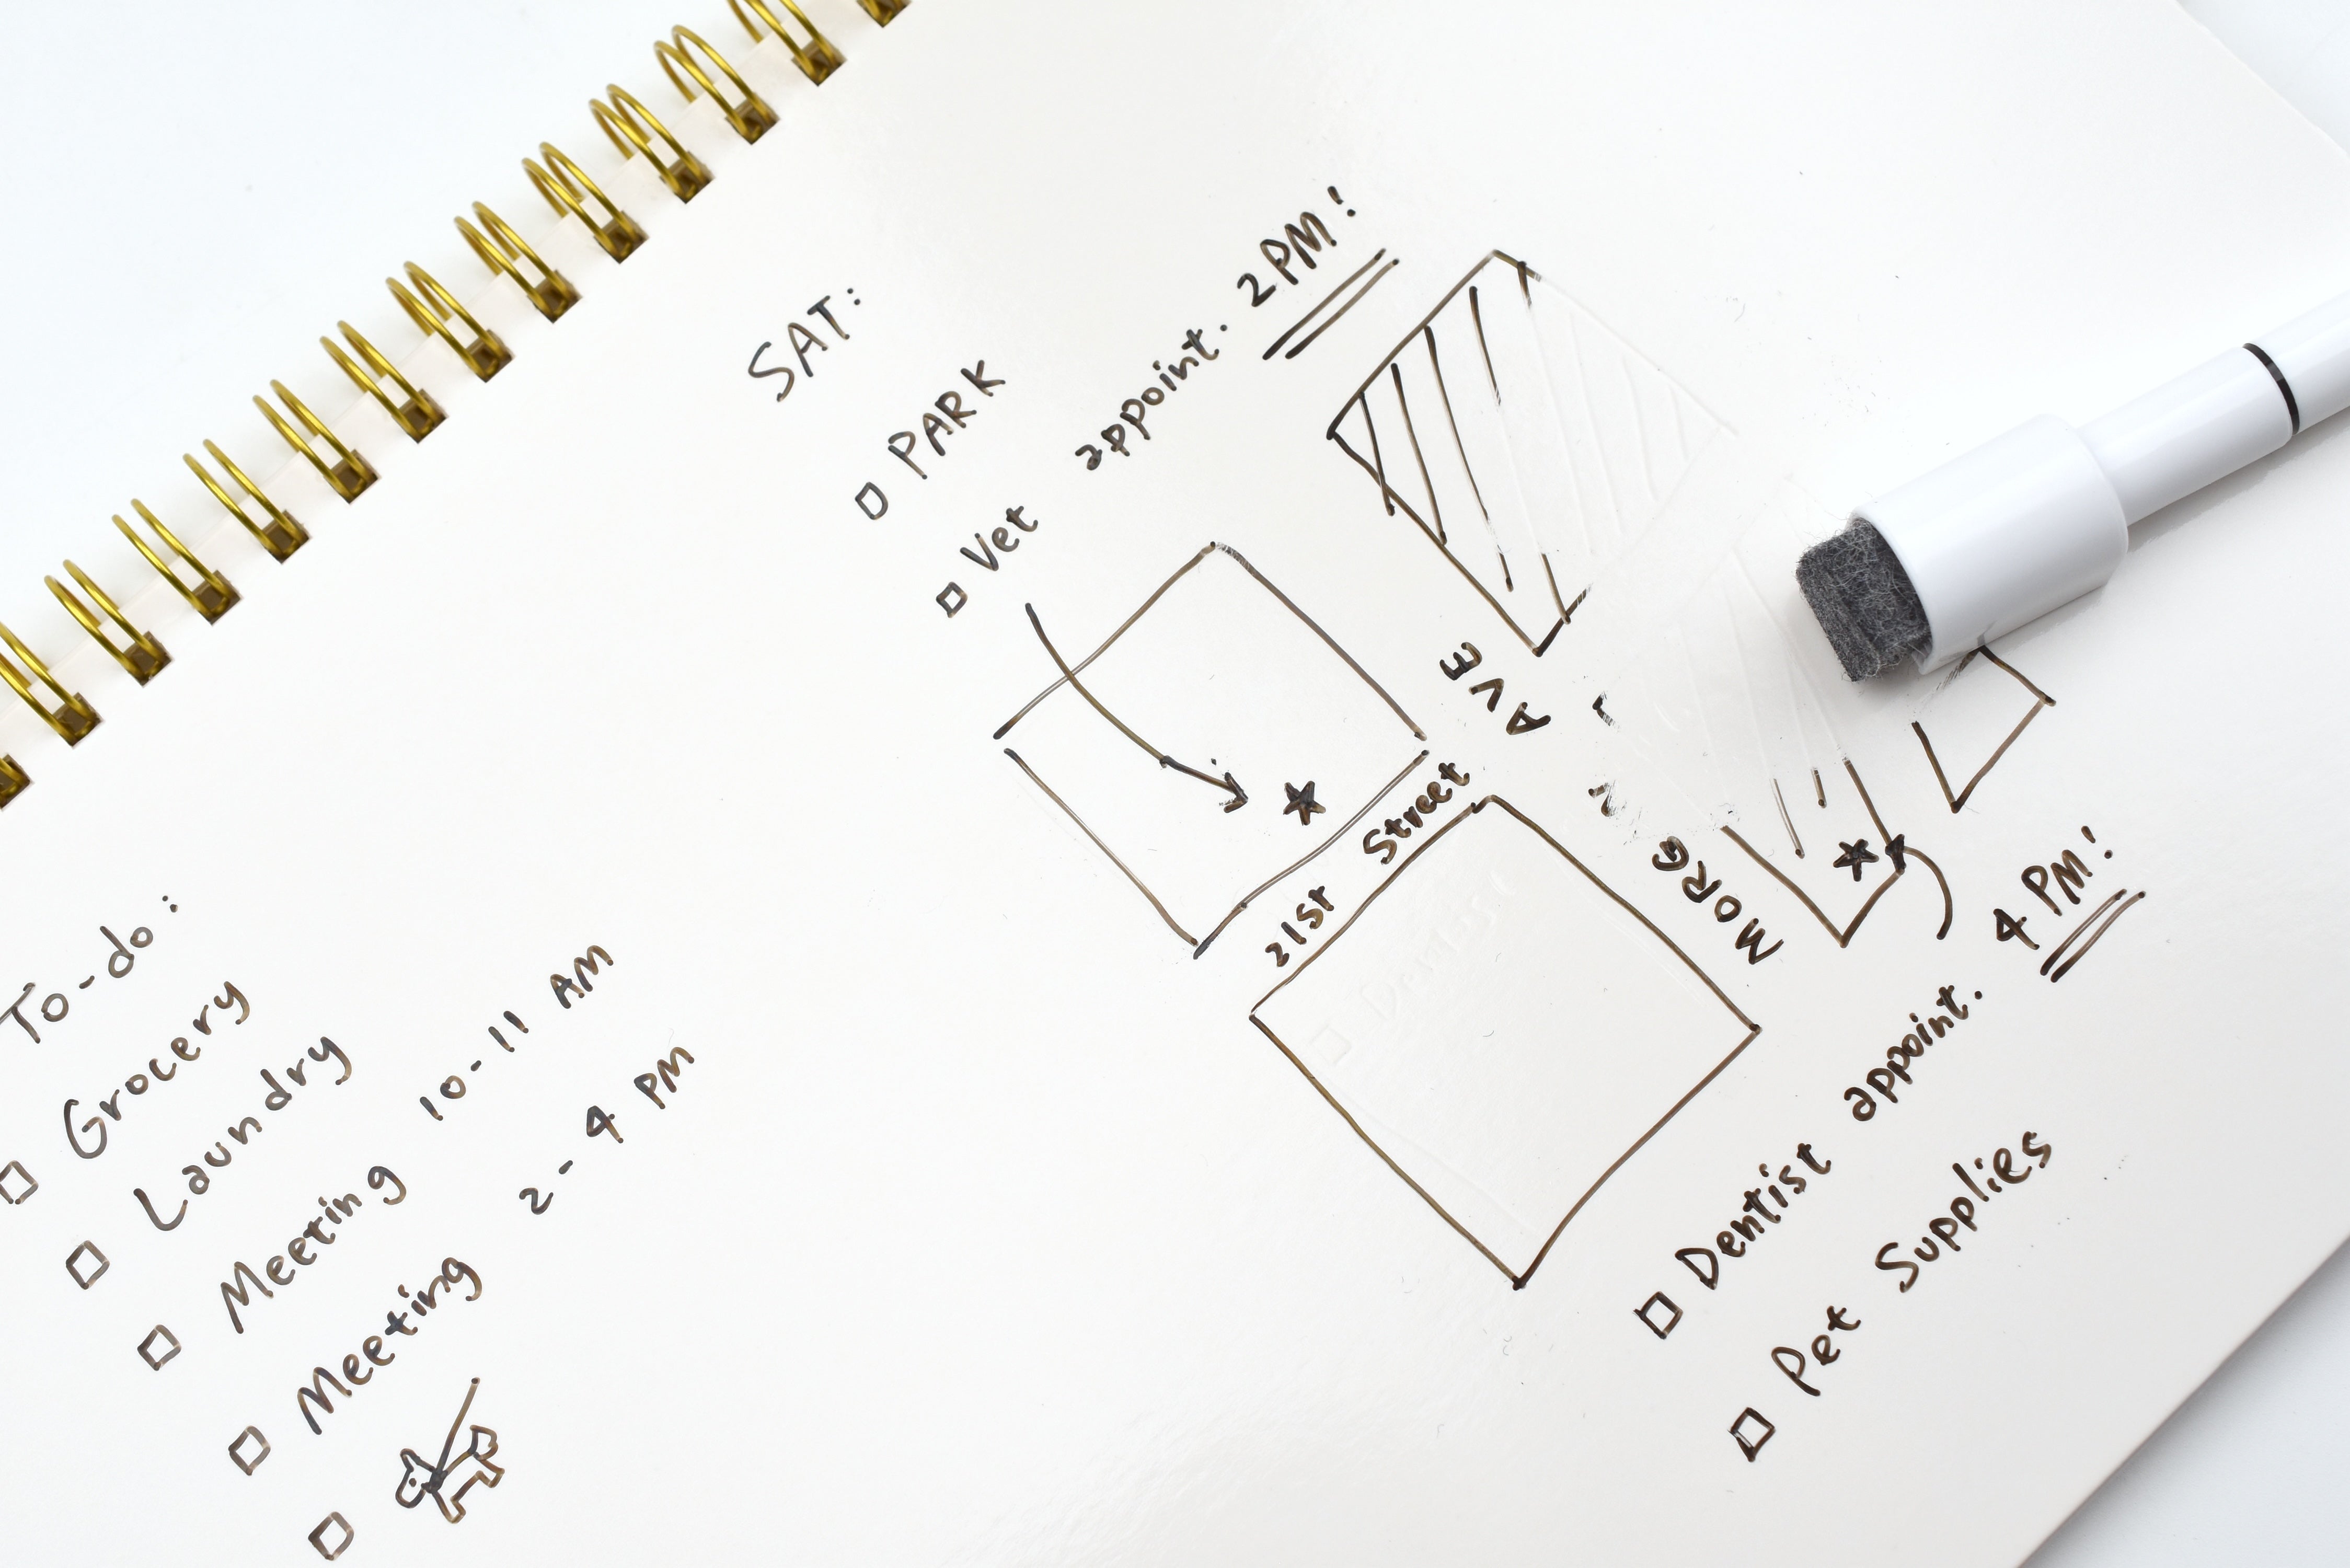 To-do:
Grocery
Laundry
Meeting 10-11 AM
Meeting 2-4 PM
SAT:
PARK
Vet appoint. 2PM!
AVE
21st Street
MORG
Dentist appoint. 4 PM!
Pet Supplies
Dentist